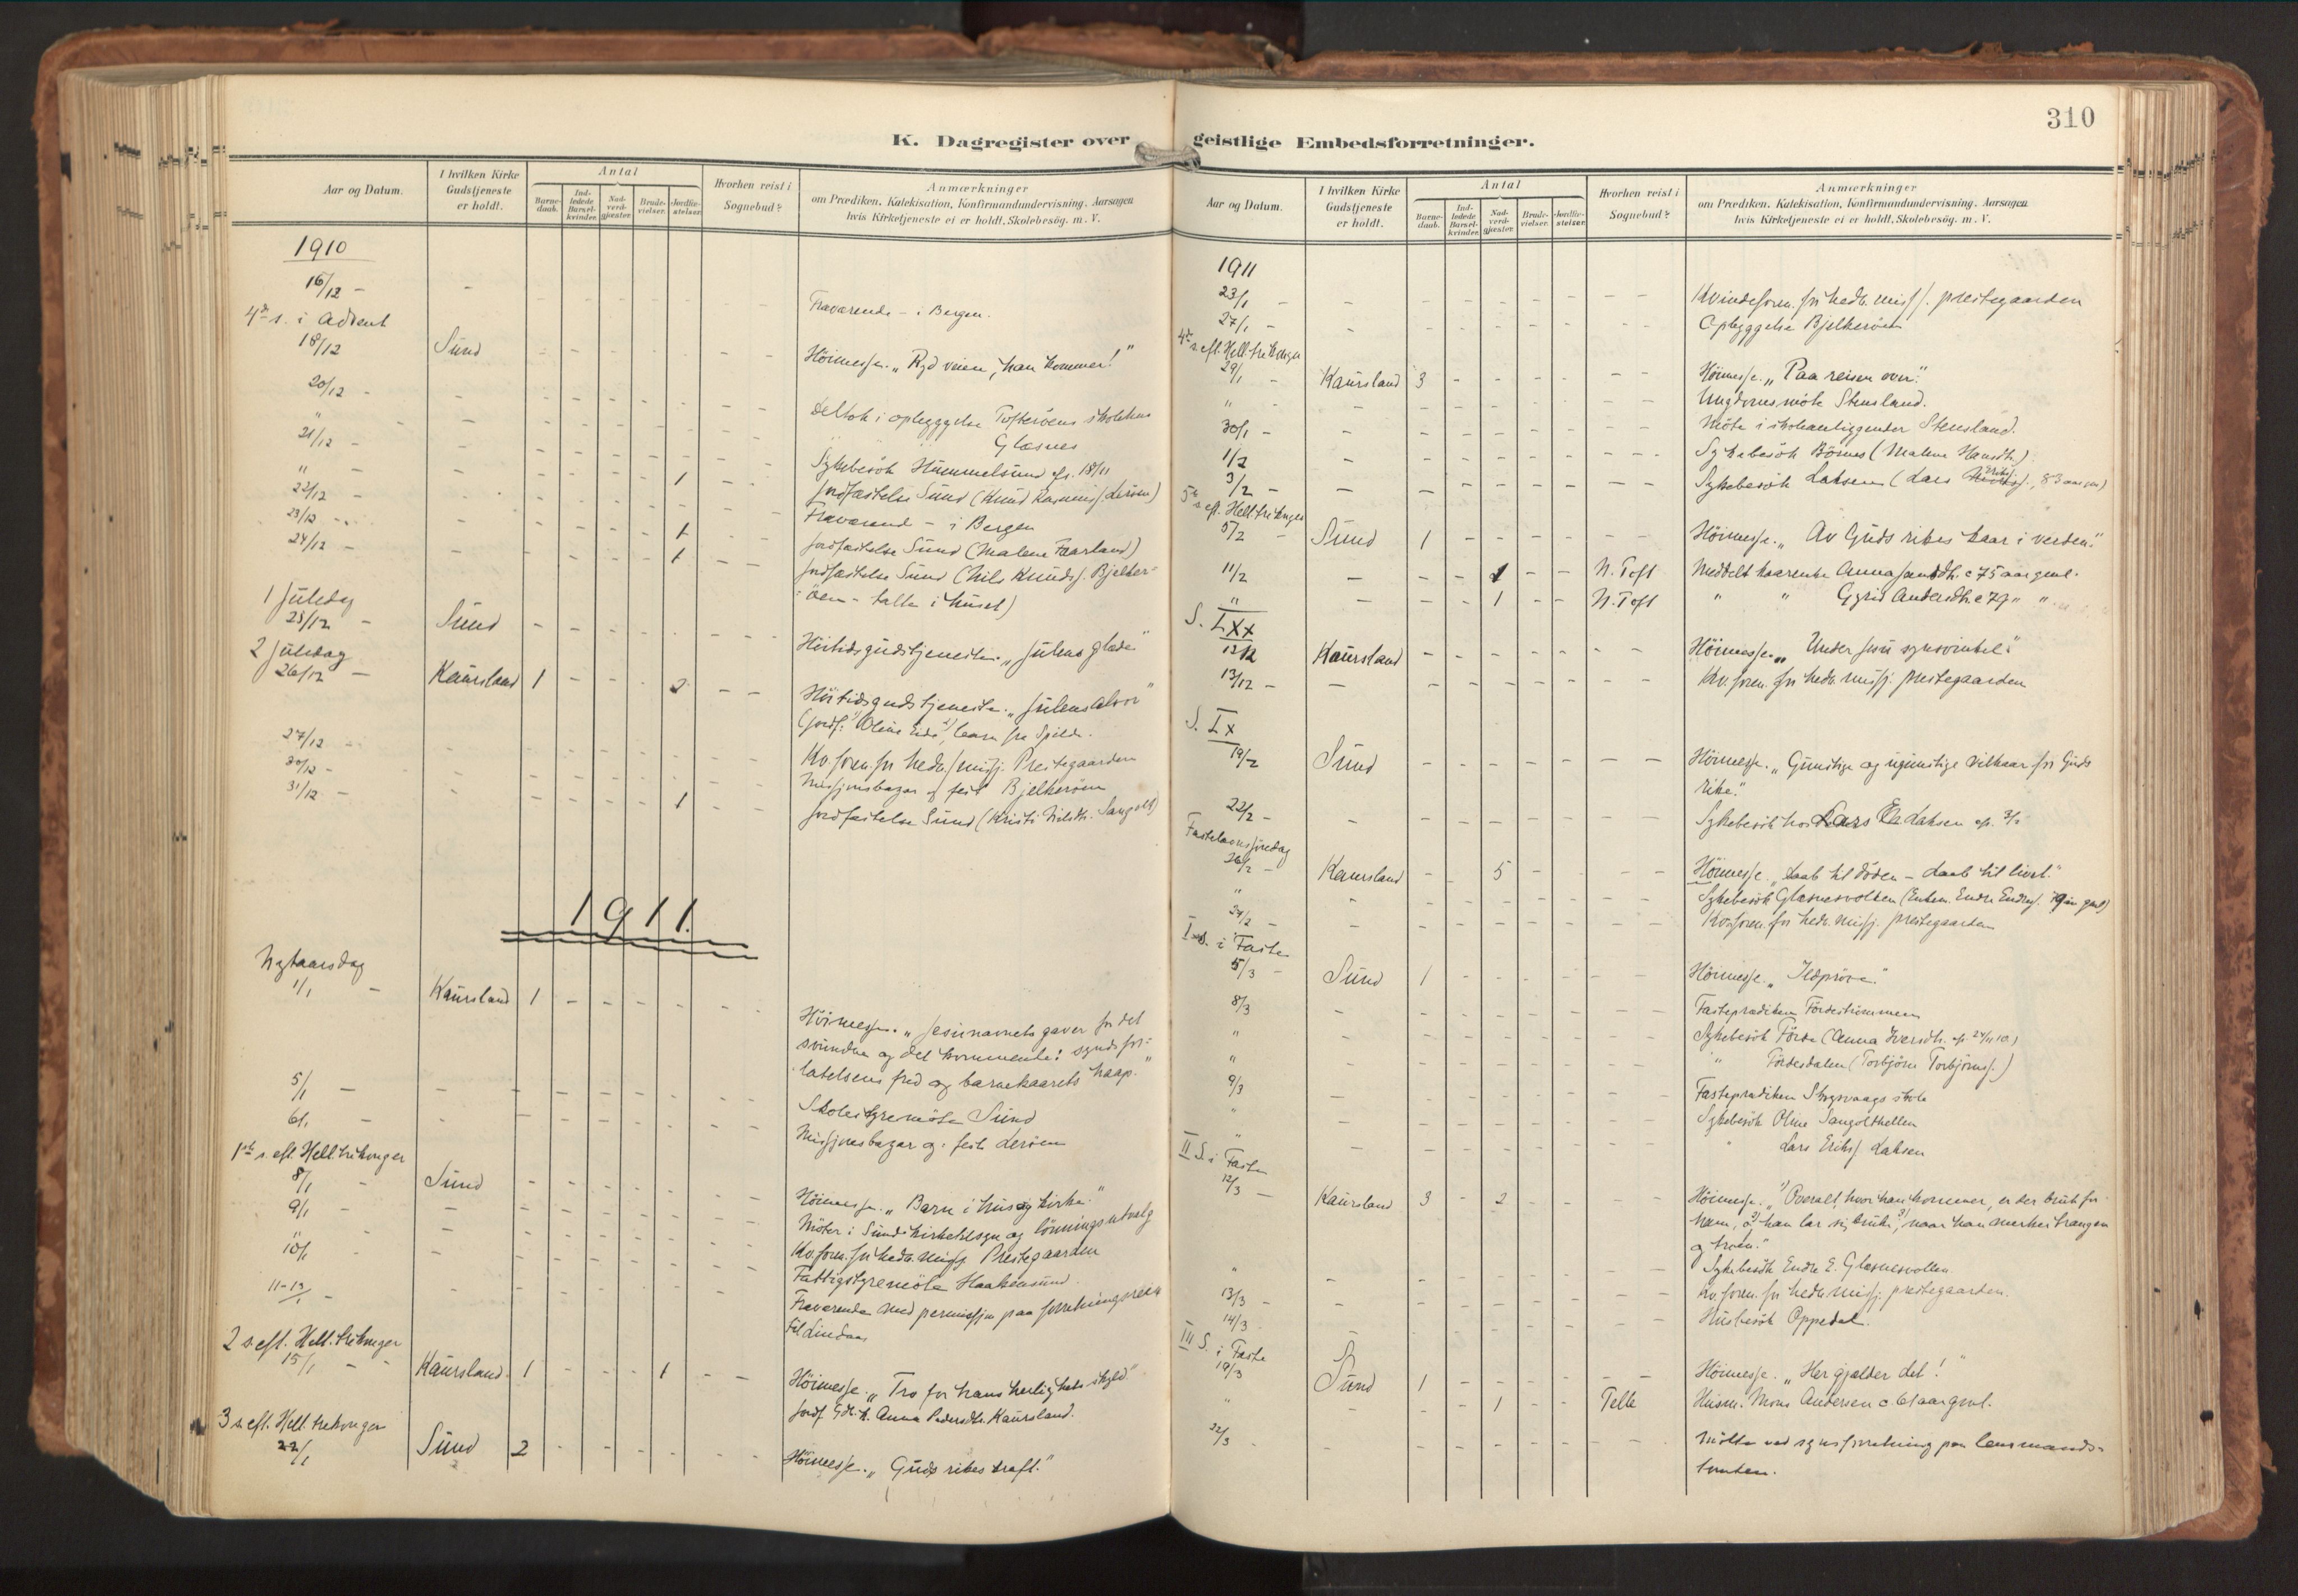 310
K. Dagregister over geistlige Embedsforretninger.
Aar og Datum.
I hvilken Kirke Gudstjeneste er holdt.
Antal
Barne-daab.
Ind-ledede Barsel-kvinder.
Nad-verd-gjæster.
Brude-vielser.
Jordfæ-stelser.
Hvorhen reist i Sognebud?
Anmærkninger
om Prædiken, Katekisation, Konfirmandundervisning, Aarsagen
hvis Kirketjeneste ei er holdt, Skolebesög. m. V.
1910
16/12 - - Fraværende - i Bergen.
4de s. i Advent
18/12 Sund Höimesse. "Ryd veien, han kommer!"
20/12 - Deltok i opbyggelse Tofteröens skolehus
" Glæsnes
21/12 - Sykebesök Hummelsund cfr. 18/11
" 1 Jordfæstelse Sund (Knud
22/12 - Fraværende - i Bergen
23/12 - 1 Jordfæstelse Sund (Malene Faarland)
24/12 - 1 Jordfæstelse Sund (Nils Knuds. Bjelker-
öen - talte i huset)
1 Juledag
25/12 - Sund Höitidsgudstjeneste. "Julens glæde"
2 Juledag
26/12 - Kaursland 1 2 Höitidsgudstjeneste. "Julens alvor"
(Jordf: 1) Oline Eide 2) barn fra Spilde.
27/12 Kv.foren. for hedn.missj. Prestegaarden
30/12 - Missjonsbazar og fest Bjelkeröen
31/12 - 1 Jordfæstelse Sund (Kristi Nilsdtr. Sangolt)
1911.
Nytaarsdag
1/1 - Kaursland 1 Höimesse. "Jesunavnets gaver for det
svundne og det kommende: synds for-
latelsens fred og barnekaarets haap."
5/1 - Skolestyremöte Sund
6/1 - Missjonsbazar og fest Leröen
1ste s. eft. Hell. tre konger
8/1 - Sund Höimesse. "Barn i hus og kirke."
9/1 - Möter i Sunds kirketilsyn og lönningsutvalg
" Kv.foren. for hedn. missj. Prestegaarden
10/1 Fattigstyremöte Haakensund.
11-13/1 - Fraværende med permissjon paa forretningsreise
til Lindaas
2 s. eft. Hell. tre konger
15/1 - Kaursland 1 1 Höimesse. "Tro for hans herligheds skyld."
Jordf. Anna Pedersdtr. Kaursland.
3 s. eft. Hell. tre konger
22/1 Sund 2 Höimesse. "Guds rikes kraft."
Aar og Datum.
I hvilken Kirke Gudstjeneste er holdt.
Antal
Barne-daab.
Ind-ledede Barsel-kvinder.
Nad-verd-gjæster.
Brude-vielser.
Jordfæ-stelser.
Hvorhen reist i Sognebud?
Anmærkninger
om Prædiken, Katekisation, Konfirmandundervisning, Aarsagen
hvis Kirketjeneste ei er holdt, Skolebesög. m. V.
1911
23/1 - Kvindeforen. for hedn. miss. prestegaarden
27/1 - Opbyggelse Bjelkeröen
4de s. eft. Hell. tre konger
29/1 - Kaursland 3 Höimesse. "Paa reisen over."
" Ungdomsmöte Stensland.
30/1 - Möte i skoleanliggender Stensland.
1/2 Sykebesök Börnes (Malene Hansdtr.)
3/2 - Sykebesök Laksen (Lars Eriks., 83 aar gml)
5te s. eft. Hell. tre konger
5/2 - Sund 1 Höimesse. "Av Guds rikes kaar i verden."
11/2 - 1 N. Toft Meddelt kaarenke Anna c 75 aar gml.
" - 1 N. Toft " " Gyrid Andersdtr. c 79 " "
S. LXX
12/2 Kaursland Höimesse. "Under Jesu synsvinkel."
13/12 - Kv. foren. for hedn. missj. prestegaarden
S. LX
19/2 Sund Höimesse. "Gunstige og ugunstige vilkaar for Guds
rike."
22/2 - Sykebesök hos Lars Laksen cfr. 3/2
Fastelavns söndag
26/2 - Kaursland 5 Höimesse. "Daab til döden - daab til livet."
" Sykebesök Glæsnesvollen (Enkem. Endre Endres. gml)
27/2 - Kv.foren. for hedn. missj. prestegaarden
I s. i Faste
5/3 - Sund 1 Höimesse. "Ildpröve."
8/3 Fasteprædiken Fördestrømmen
" Sykebesök Förde (Anna Iversdtr. cfr. 24/11 10.)
" " Fördesdalen (Torbjörn Torbjörns.)
9/3 Fasteprædiken Skogsvaags skole
" Sykebesök Oline Sangolthellen
" " Lars Eriks. Laksen
II S. i Faste
12/3 - Kaursland 3 2 Höimesse. "1) Overalt, hvor han kommer, er der bruk for
ham, 2) han lar sig bruke, 3) naar han merker trangen
og troen."
" Sykebesök Endre E. Glæsnesvollen
13/3 - Kv.foren. for hedn. missj. prestegaarden.
14/3 Husbesök Oppedal.
III S. i Faste
19/3 Sund 1 Höimesse. "Her gjælder det!"
" 1 Telle Husm. Mons Andersen c. 61 aar gml.
22/3 Mötte ved synsforretning paa lensmands-
tomten.